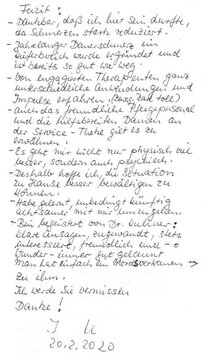 Fazit:
- Dankbar, daß ich hier sein durfte,
da Schmerzen stark reduziert.
- Jahrelanger Dauerschmerz im
wurde ergründet und
ist bereits so gut wie weg.
- von engagierten Therapeuten ganz
unterschiedliche Anwendungen und
Impulse erfahren. (Bwgs. bad toll)
- auch das freundliche Pflegepersonal
und die hilfsbereiten Damen an
der Service-Theke gilt es zu
erwähnen.
- Es geht mir nicht nur physisch viel
besser, sondern auch psychisch.
- Deshalb hoffe ich, die Situation
zu Hause besser bewältigen zu
können!
- Habe gelernt, unbedingt künftig
achtsamer mit mir umzugehen.
- Bin begeistert von Dr.
klare Ansagen, zugewandt, stets
interessiert, freundlich und - o
Wunder - immer gut gelaunt
Man hat einfach ein Mordsvertrauen →
zu ihm.
Ich werde Sie vermissen
Danke!
20.2.2020